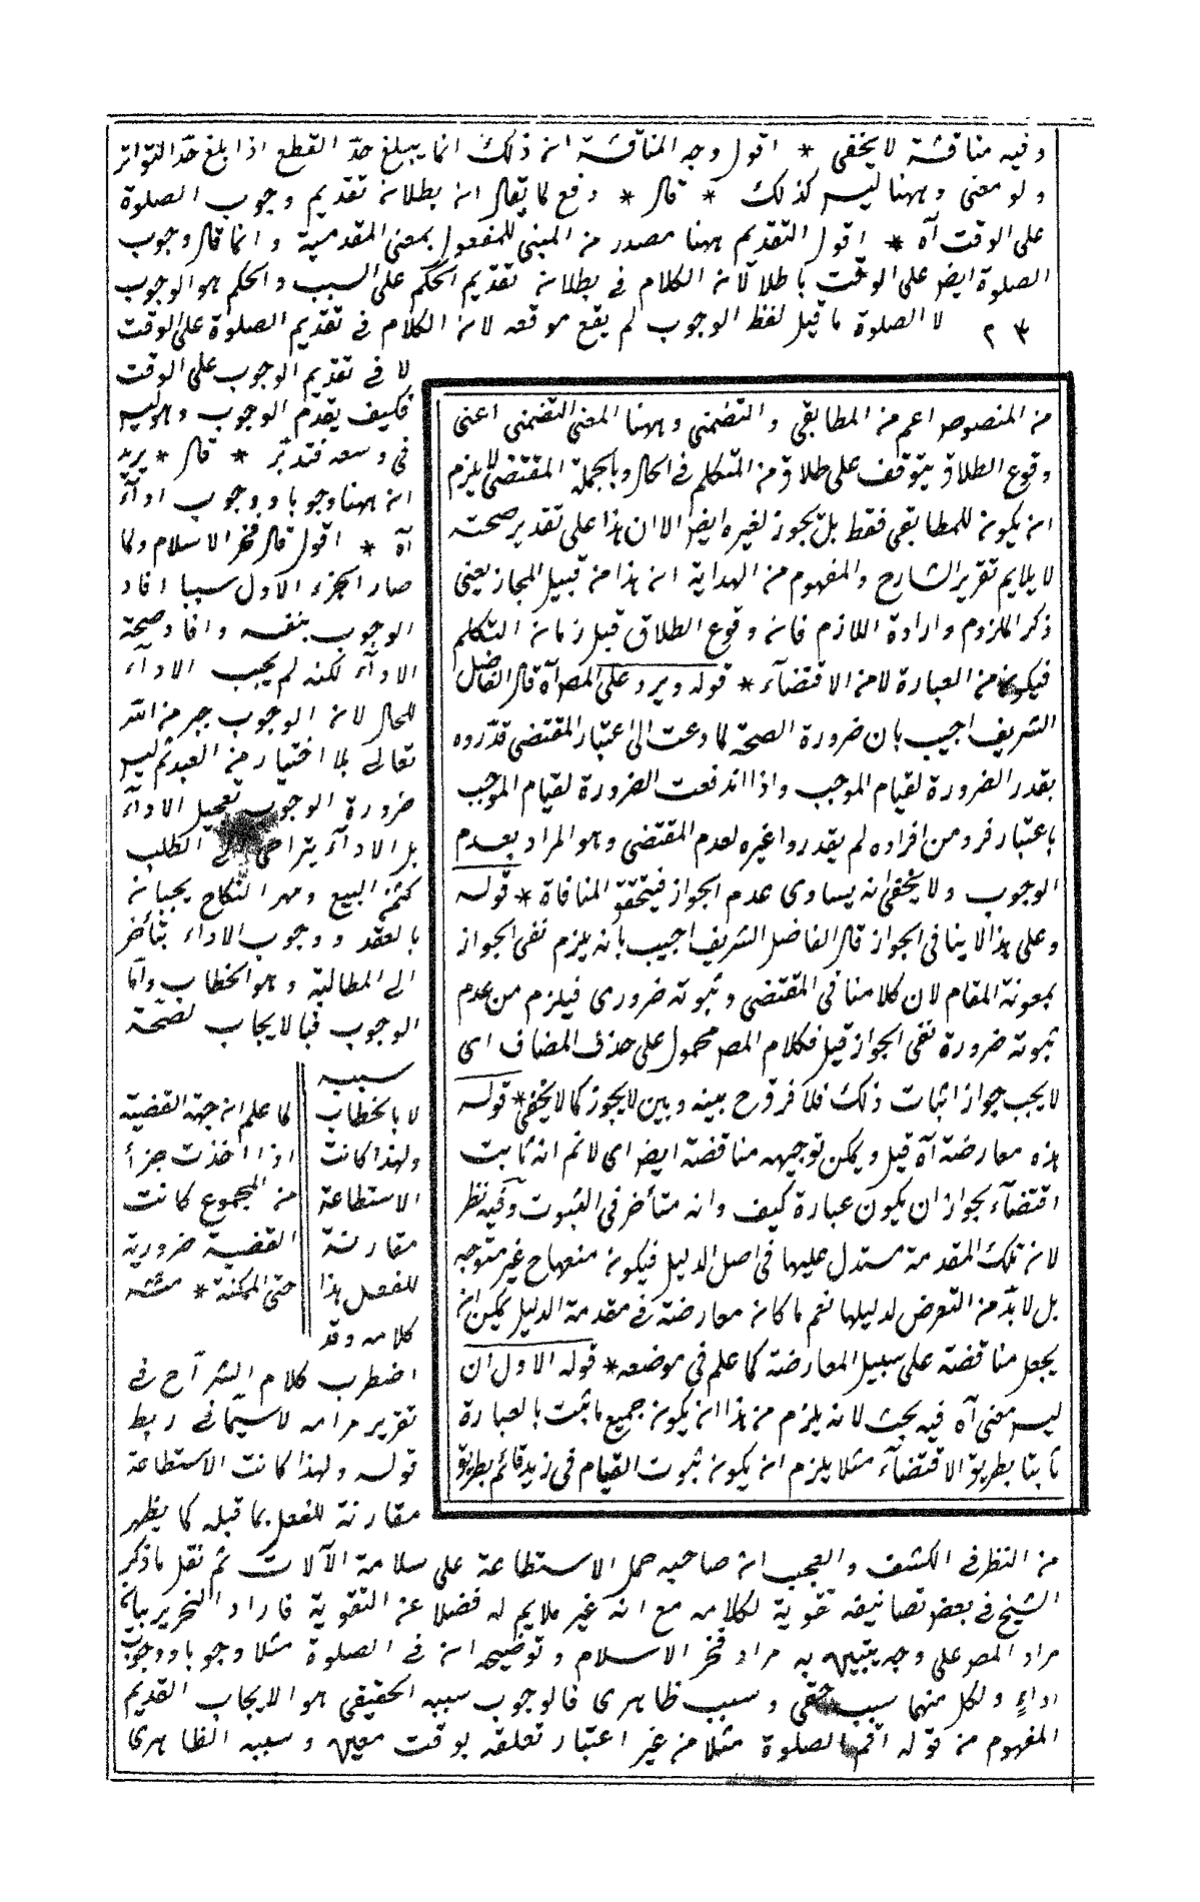 وفيه مناقشة لا يخفى * اقول وجه المناقشة ان ذلك انما يبلغ حد القطع اذا بلغ حد التواتر
ولو معنى وههنا ليس كذلك * قال * دفع لما يقال ان بطلان تقديم وجوب الصلوة
على الوقت آه * اقول التقديم ههنا مصدر من المبنى للمفعول بمعنى المقدمية وانما قال وجوب
الصلوة ايض على الوقت باطلا لان الكلام فى بطلان تقديم الحكم على السبب والحكم هو الوجوب
لا الصلوة ما قيل لفظ الوجوب لم يقع موقعه لان الكلام فى تقديم الصلوة على الوقت
لا فى تقديم الوجوب على الوقت
فكيف يقدم الوجوب وهو ليس
فى وسعه فتدبر * قال * يريد
ان ههنا وجوبا ووجوب اداء
آه * اقول قال فخر الاسلام ولما
صار الجزء الاول سببا افاد
الوجوب بنفسه وافاد صحة
الاداء لكنه لم يجب الاداء
للحال لان الوجوب جبر من الله
تعالى بلا اختيار من العبد ثم ليس
ضرورة الوجوب تعجيل الاداء
بل الاداء يتراخى الى الطلب
كثمن البيع ومهر النكاح يجبان
بالعقد ووجوب الاداء يتأخر
الى المطالبة وهو الخطاب واما
الوجوب فبالايجاب لصحة
سببه
لا بالخطاب
ولهذا كانت
الاستطاعة
مقارنة
للفعل هذا
كلامه وقد
كما علم ان جهة القضية
اذا اخذت جزأ
من المجموع كانت
القضية ضرورية
حتى الممكنة * منه
اضطرب كلام الشراح فى
تقرير مرامه لاسيما فى ربط
قوله ولهذا كانت الاستطاعة
مقارنة للفعل بما قبله كما يظهر
من النظر فى الكشف والعجب ان صاحبه حمل الاستطاعة على سلامة الآلات ثم نقل ما ذكر
الشيخ فى بعض تصانيفه تقوية لكلامه مع انه غير ملايم له فضلا عن التقوية فاراد التحرير بيان
مراد المص على وجه يتبين به مراد فخر الاسلام وتوضيحه ان فى الصلوة مثلا وجوبا ووجوب
اداء ولكل منهما سبب حقيقى وسبب ظاهرى فالوجوب سببه الحقيقى هو الايجاب القديم
المفهوم من قوله اقم الصلوة مثلا من غير اعتبار تعلقه بوقت معين وسببه الظاهرى
من المنصوص اعم من المطابقى والتضمنى وههنا المعنى التضمنى اعنى
وقوع الطلاق يتوقف على طلاق من المتكلم فى الحال وبالجملة المقتضى لا يلزم
ان يكون للمطابقى فقط بل يجوز لغيره ايض الا ان هذا على تقدير صحته
لا يلايم تقرير الشارح والمفهوم من الهداية ان هذا من قبيل المجاز يعنى
ذكر الملزوم وارادة اللازم فانه وقوع الطلاق قبل زمان التكلم
فيكون من العبارة لا من الاقتضاء * قوله ويرد على المص آه قال الفاضل
الشريف اجيب بان ضرورة الصحة لما دعت الى اعتبار المقتضى قدروه
بقدر الضرورة لقيام الموجب واذا اندفعت الضرورة لقيام الموجب
باعتبار فرد من افراده لم يقدروا غيره لعدم المقتضى وهو المراد بعدم
الوجوب ولا يخفى انه يساوى عدم الجواز فيتحقق المنافاة * قوله
وعلى هذا لا ينافى الجواز قال الفاضل الشريف اجيب بانه يلزم نفى الجواز
بمعونة المقام لان كلامنا فى المقتضى وثبوته ضرورى فيلزم من عدم
ثبوته ضرورة نفى الجواز قيل فكلام المص محمول على حذف المضاف اى
لا يجب جواز اثبات ذلك فلا فرق ح بينه وبين لا يجوز كما لا يخفى * قوله
هذه معارضة آه قيل ويمكن توجيهه مناقضة ايض اى لا نم انه ثابت
اقتضاء لجواز ان يكون عبارة كيف وانه متأخر فى الثبوت وفيه نظر
لان تلك المقدمة مستدل عليها فى اصل الدليل فيكون منعها ح غير متوجه
بل لا بد من التعرض لدليلها نعم ما كان معارضة فى مقدمة الدليل يمكن ان
يجعل مناقضة على سبيل المعارضة كما علم فى موضعه * قوله الاول ان
ليس معنى آه فيه بحث لانه يلزم من هذا ان يكون جميع ما ثبت بالعبارة
ثابتا بطريق الاقتضاء مثلا يلزم ان يكون ثبوت القيام فى زيد قائم بطريق